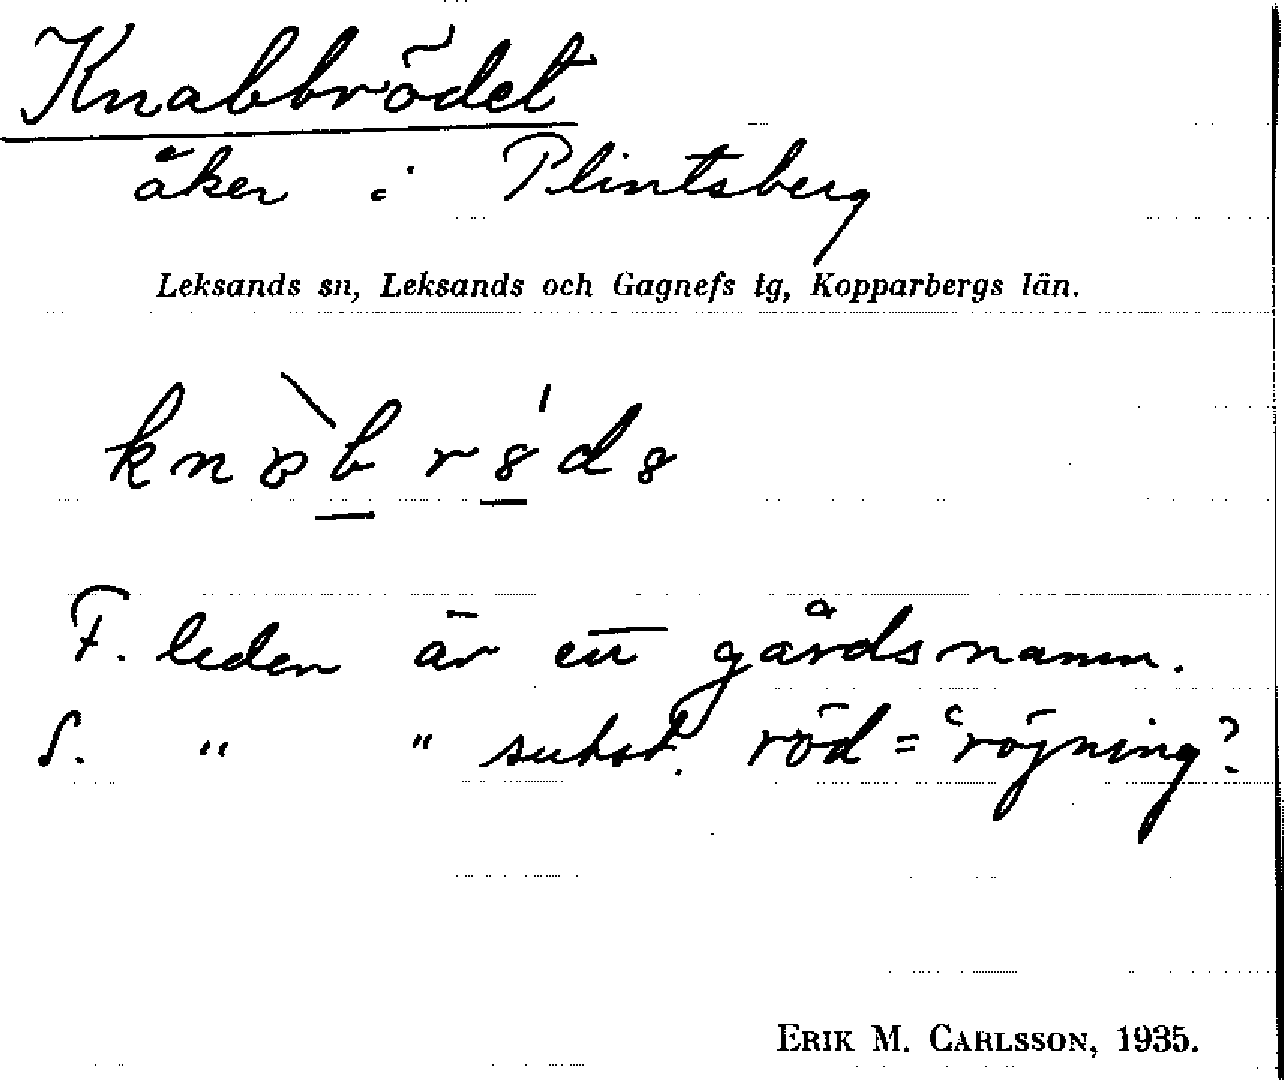 Knabbrödet
åker i Plintsberg
Leksands sn, Leksands och Gagnefs tg, Kopparbergs län.
F. leden är ett gårdsnamn.
S. " " subst. röd = röjning?
ERIK M. CARLSSON, 1935.